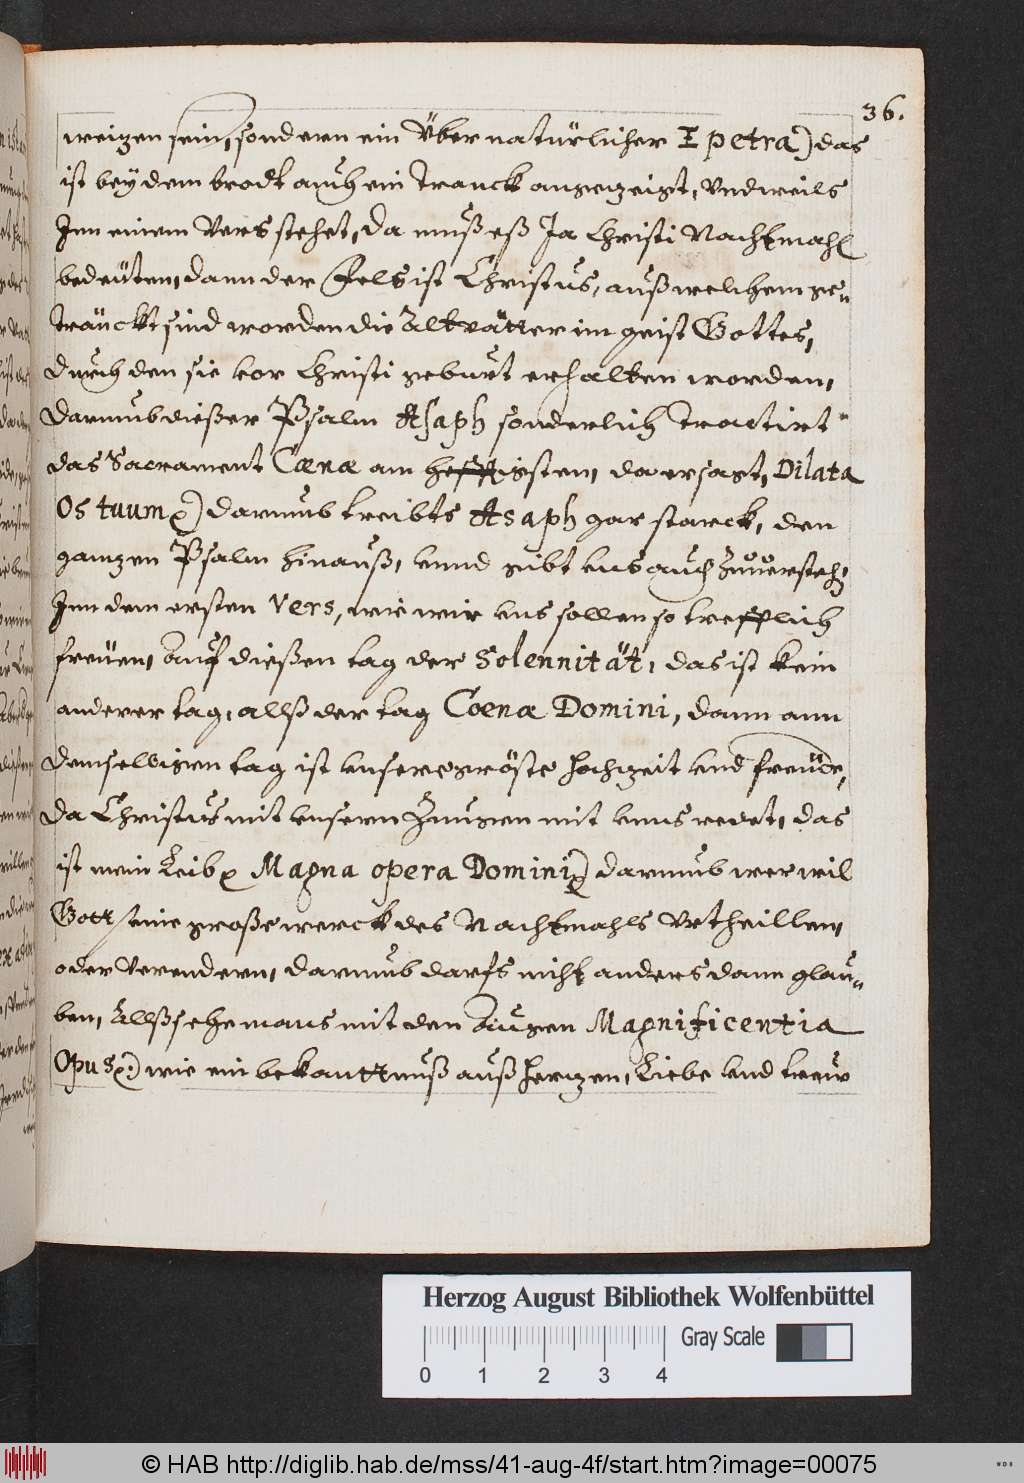 36.
weitzen sein, sondern ein Übernatürlicher I petra) das
ist bey dem brodt auch ein tranck angezeigt, Vnd weils
Inn einem Vers stehet, da muß eß Ja Christi Nachtmahl
bedeüten, dann der Fels ist Christus, auß welchem ge-
tränckt sind worden die Altvätter im geist Gottes,
durch den sie vor Christi geburt erhalten worden,
darumb dießer Psalm Asaph sonderlich tractirt
das Sacrament Cœnæ am hefftigsten, da er sagt, Dilata
Os tuum ꝛc) darumb treibts Asaph gar starck, den
gantzen Psalm hinauß, vnnd gibt vns auch zuuerstehn
Inn dem ersten Vers, wie wir vns sollen so trefflich
freüen, Auf dießen tag der Solennität, das ist kein
anderer tag, allß der tag Coenæ Domini, dann ann
demselbigen tag ist vnsere gröste hochzeit vnd freüde,
da Christus mit vnsern Zungen mit vnns redet, das
ist mein Leib ꝛc Magna opera Domini ꝛc) darumb wer wil
Gott seine große werck des Nachtmahls Vrtheillen,
oder Verendern, darumb darfs nicht anders dann glau-
ben, Allß sehe mans mit den Augen Magnificentia
Opus ꝛc:) wie ein bekanttnuß auß hertzen, Liebe vnd treuw
Herzog August Bibliothek Wolfenbüttel
Gray Scale
0 1 2 3 4
© HAB http://diglib.hab.de/mss/41-aug-4f/start.htm?image=00075